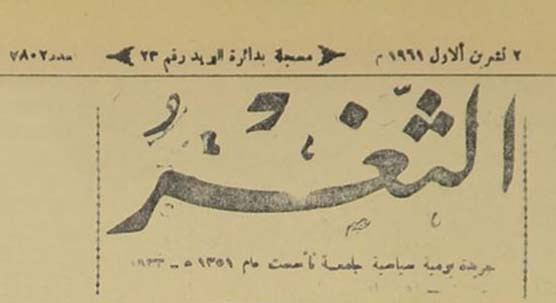 ٢ تشرين الاول ١٩٦١ م مسجلة بدائرة البريد رقم ٢٣ عدد ٧٨٠٢
الثَّغْرُ
جريدة يومية سياسية جامعة تأسست عام ١٣٥١ ه ـ ١٩٣٣